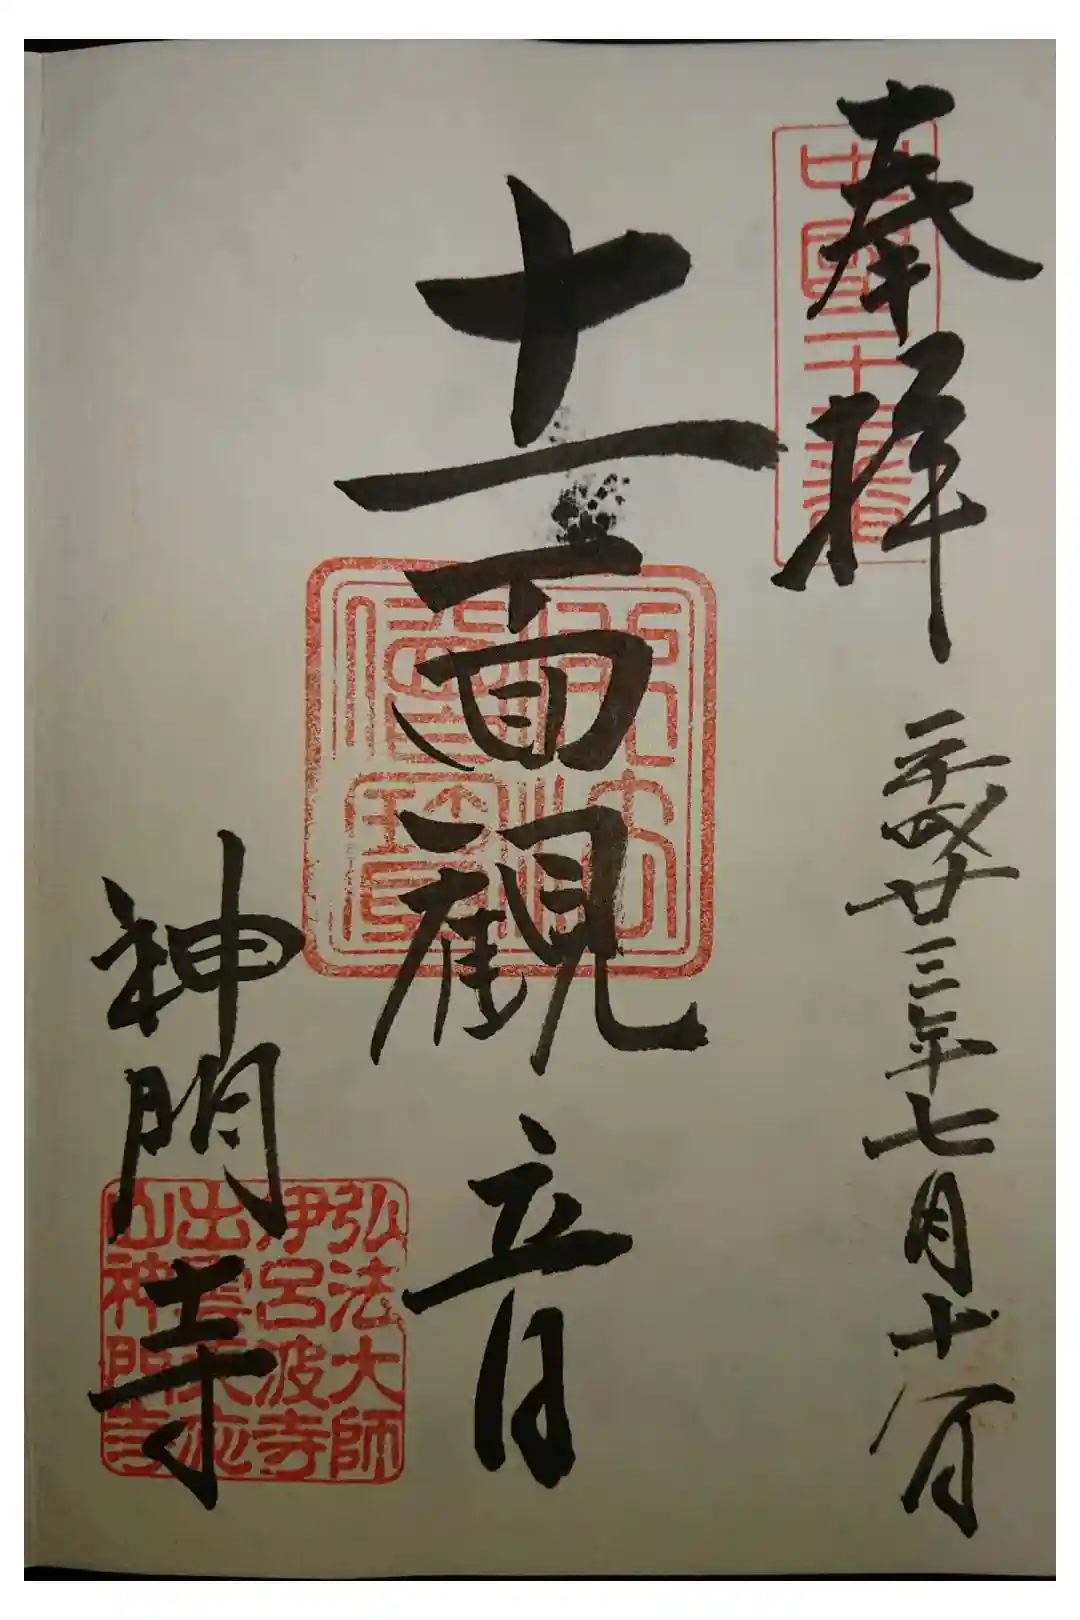 奉拝
平成廿三年七月十八日
十一面観音
佛法
僧寶
神門寺
弘法大師
伊呂波寺
出雲天応
山神門寺